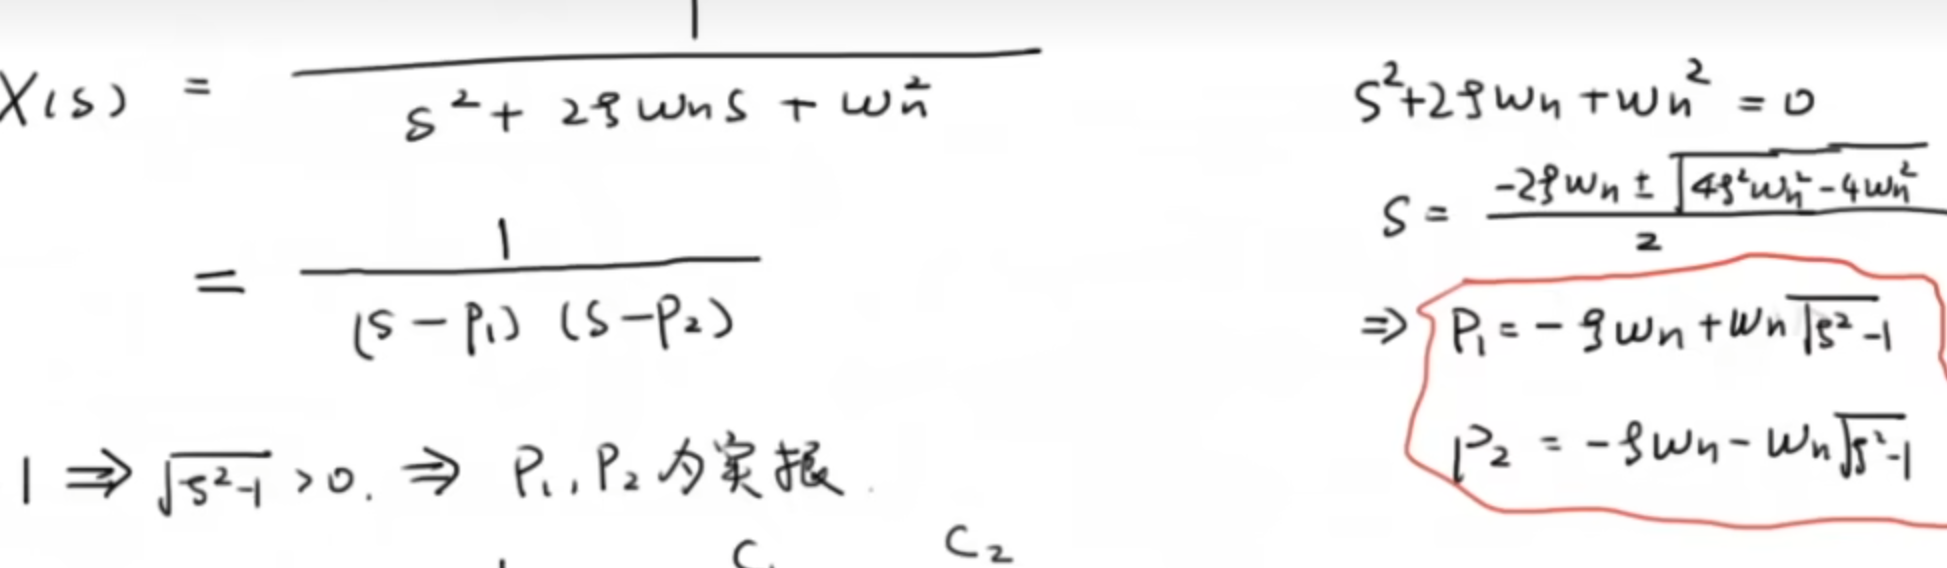 X(s) = 1 / (s² + 2ζωₙs + ωₙ²)
= 1 / ((s - p₁) (s - p₂))
1 ⇒ √(ζ²-1) > 0. ⇒ P₁, P₂ 为实根
C₁ C₂
s² + 2ζωₙ + ωₙ² = 0
s = (-2ζωₙ ± √(4ζ²ωₙ² - 4ωₙ²)) / 2
⇒ P₁ = -ζωₙ + ωₙ√(ζ²-1)
P₂ = -ζωₙ - ωₙ√(ζ²-1)